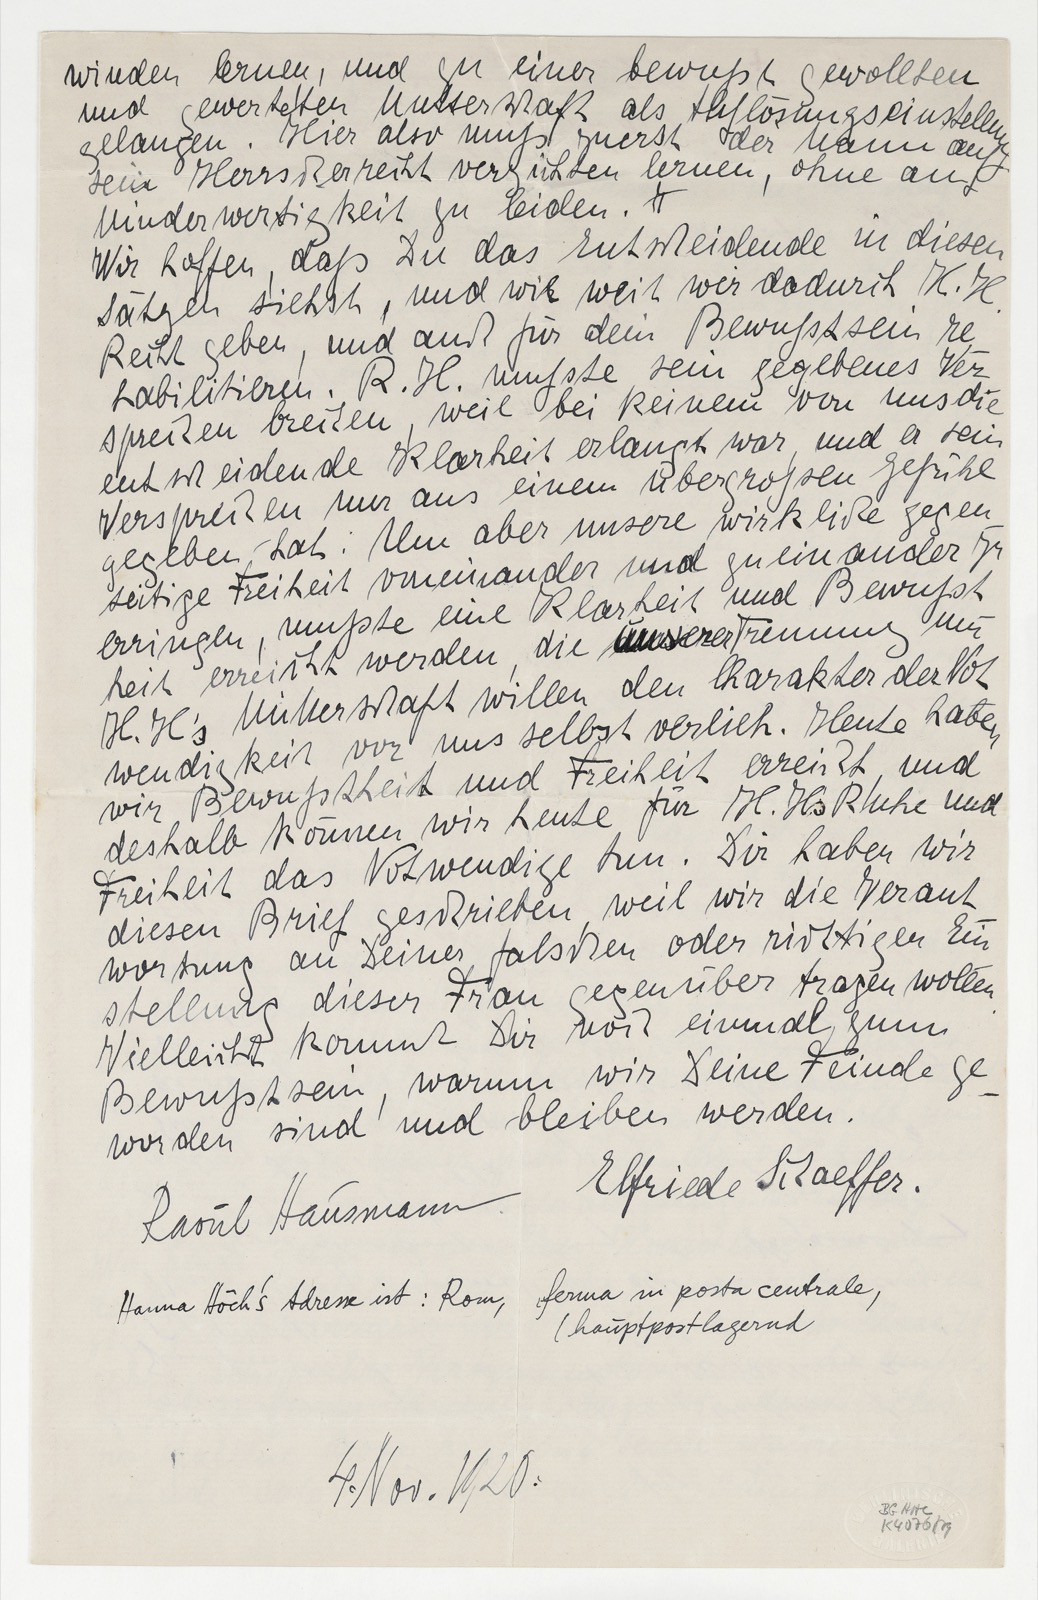 winden lernen, und zu einer bewußt gewollten
und gewerteten Mutterschaft als Auflösungseinstellung
gelangen. Hier also muß zuerst der Mann auf
sein Herrscherrecht verzichten lernen, ohne an
Minderwertigkeit zu leiden."
Wir hoffen, daß Du das Entscheidende in diesen
Sätzen siehst, und wie weit wir dadurch H. H.
Recht geben, und auch für dein Bewußtsein re
habilitieren. R. H. mußte sein gegebenes Ver
sprechen brechen, weil bei keinem von uns die
entscheidende Klarheit erlangt war, und er sein
Versprechen nur aus einem übergroßen Gefühl
gegeben hat. Um aber unsere wirkliche gegen
seitige Freiheit voneinander und zueinander zu
erringen, mußte eine Klarheit und Bewußt
heit erreicht werden, die unserer Trennung um
H. H's Mutterschaft willen den Charakter der Not
wendigkeit vor uns selbst verlieh. Heute haben
wir Bewußtheit und Freiheit erreicht, und
deshalb können wir heute für H. Hs Ruhe und
Freiheit das Notwendige tun. Dir haben wir
diesen Brief geschrieben, weil wir die Verant
wortung an Deiner falschen oder richtigen Ein
stellung dieser Frau gegenüber tragen wollen.
Vielleicht kommt Dir noch einmal zum
Bewußtsein, warum wir Deine Feinde ge-
worden sind und bleiben werden.
Elfriede Schaeffer.
Raoul Hausmann
Hanna Höch's Adresse ist: Rom, ferma in posta centrale,
(hauptpostlagernd
4. Nov. 1920.
BG HHC
K4076/79